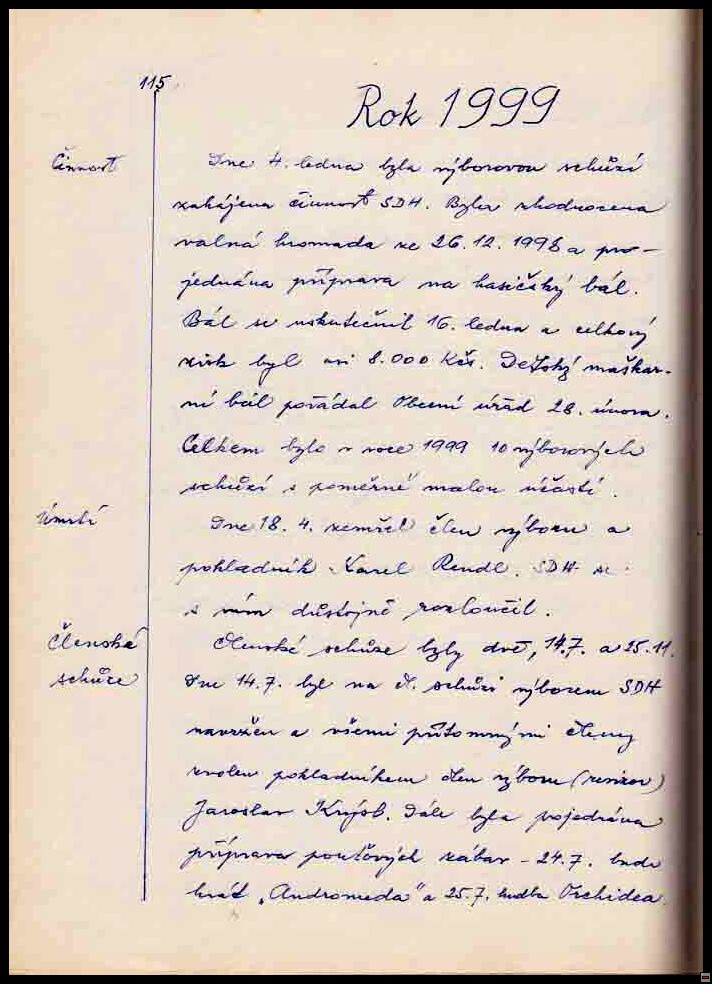 115
Rok 1999
Činnost
Dne 4. ledna byla výborovou schůzí
zahájena činnost SDH. Byla zhodnocena
valná hromada ze 26.12.1998 a pro-
jednána příprava na hasičský bál.
Bál se uskutečnil 16. ledna a celkový
zisk byl asi 8.000 Kčs. Dětský maškar-
ní bál pořádal Obecní úřad 28. února.
Celkem bylo v roce 1999 10 výborových
schůzí s poměrně malou účastí.
Úmrtí
Dne 18. 4. zemřel člen výboru a
pokladník Karel Rendl. SDH se
s ním důstojně rozloučil.
Členská
schůze
Členské schůze byly dvě, 14.7. a 25.11.
Dne 14.7. byl na čl. schůzi výborem SDH
navržen a všemi přítomnými členy
zvolen pokladníkem člen výboru (revizor)
Jaroslav. Dále byla pojednána
příprava pouťových zábav - 24.7. bude
hrát „Andromeda" a 25.7. hudba Orchidea.